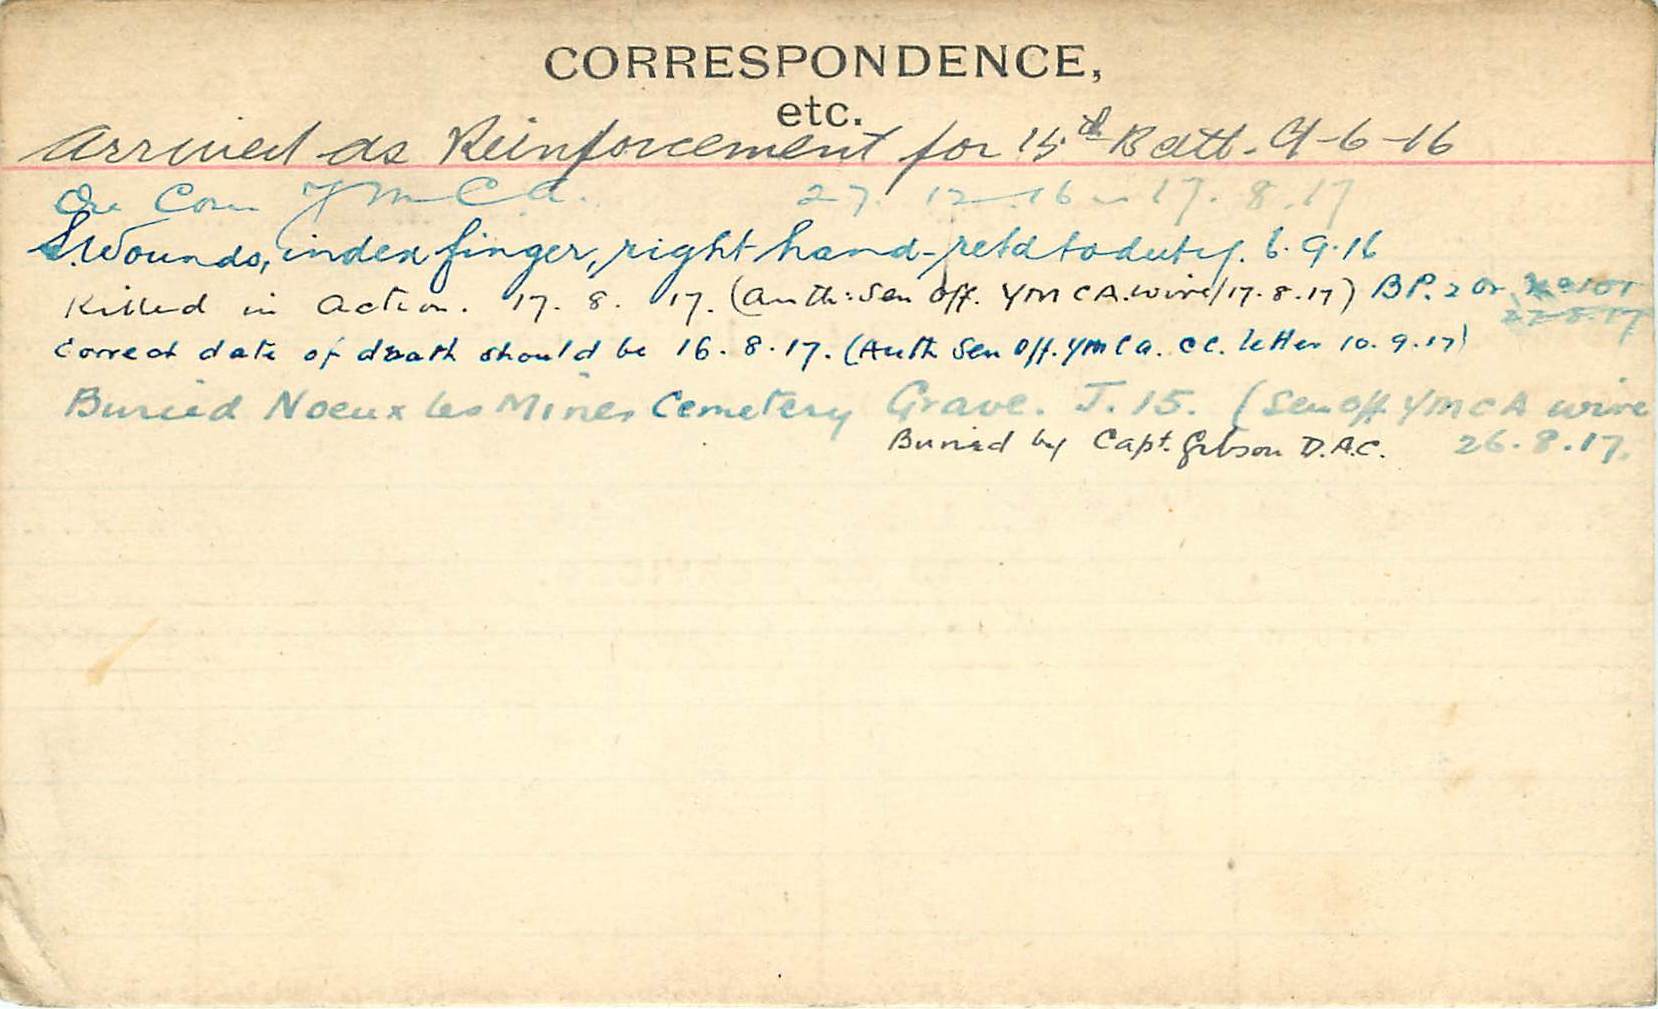 CORRESPONDENCE,
etc.
Arrived as Reinforcement for 15th Batt. 9-6-16
On Com Y M C A. 27. 12. 16 - 17. 8. 17
S. Wounds, index finger, right hand - retd to duty. 6.9.16
Killed in Action. 17. 8. 17. (Auth: Sen Off. YMCA. wire/17.8.17) BP. 2 Or
22.8.17
Correct date of death should be 16.8.17. (Auth Sen Off. YMCA. CC. letter 10.9.17)
Buried Noeux les Mines Cemetery Grave. J. 15. (Sen Off YMCA wire
Buried by Capt. Gibson D.A.C. 26.8.17.